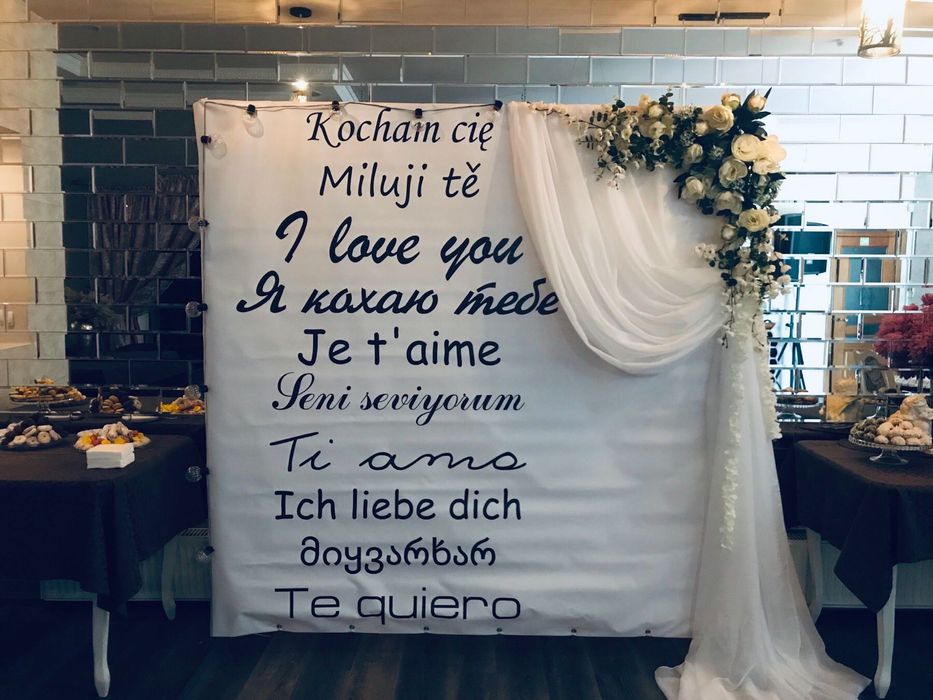 Kocham cię
Miluji tě
I love you
Я кохаю тебе
Je t'aime
Seni seviyorum
Ti amo
Ich liebe dich
მიყვარხარ
Te quiero